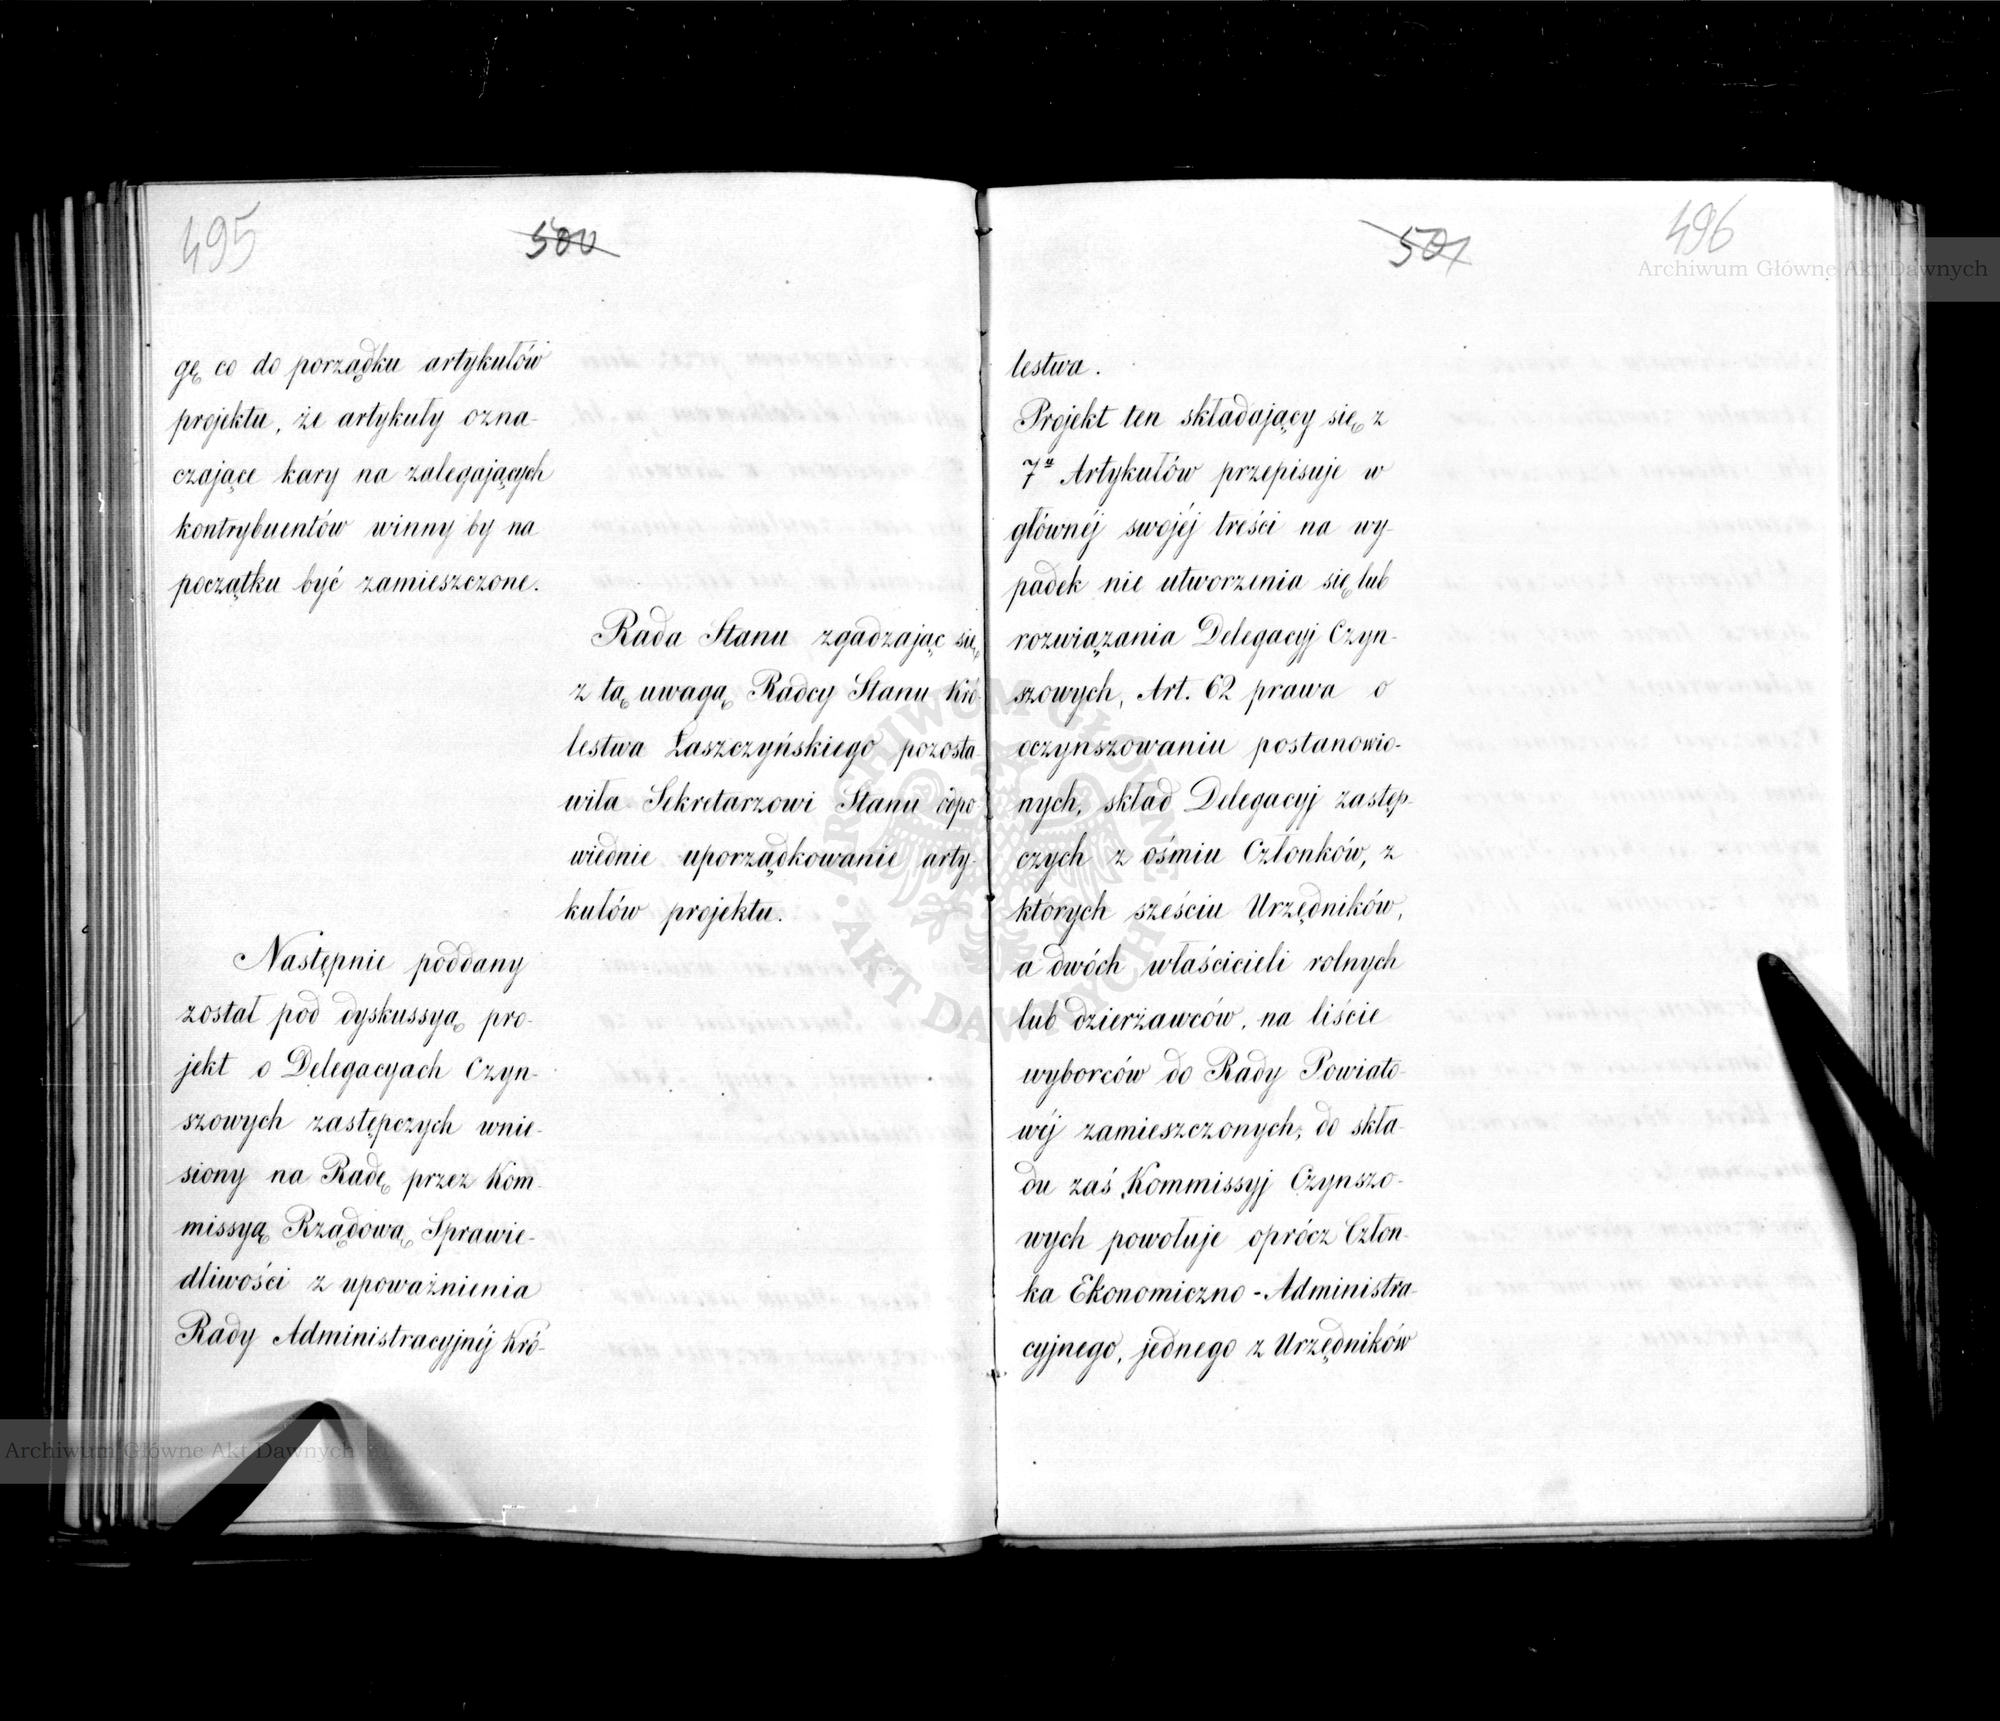 495
500
gę co do porządku artykułów
projektu, że artykuły ozna-
czające kary na zalegających
kontrybuentów winny by na
początku być zamieszczone.
Rada Stanu zgadzając się
z tą uwagą Radcy Stanu Kró-
lestwa Łaszczyńskiego pozosta
wiła Sekretarzowi Stanu odpo
wiednie uporządkowanie arty-
kułów projektu.
Następnie poddany
został pod dyskussyą pro-
jekt o Delegacyach Czyn-
szowych zastępczych wnie-
siony na Radę przez Kom-
missyą Rządową Sprawie-
dliwości z upoważnienia
Rady Administracyjnéj Kró-
501
496
lestwa.
Projekt ten składający się z
7u Artykułów przepisuje w
głównéj swojéj treści na wy-
padek nie utworzenia się lub
rozwiązania Delegacyj Czyn-
szowych, Art. 62 prawa o
oczynszowaniu postanowio-
nych, skład Delegacyj zastęp-
czych z ośmiu Członków, z
których sześciu Urzędników,
a dwóch właścicieli rolnych
lub dzierżawców, na liście
wyborców do Rady Powiato-
wéj zamieszczonych; do skła-
du zaś Kommissyj Czynszo-
wych powołuje oprócz Człon-
ka Ekonomiczno-Administra-
cyjnego, jednego z Urzędników
Archiwum Główne Akt Dawnych
Archiwum Główne Akt Dawnych
ARCHIWUM GŁÓWNE · AKT DAWNYCH ·